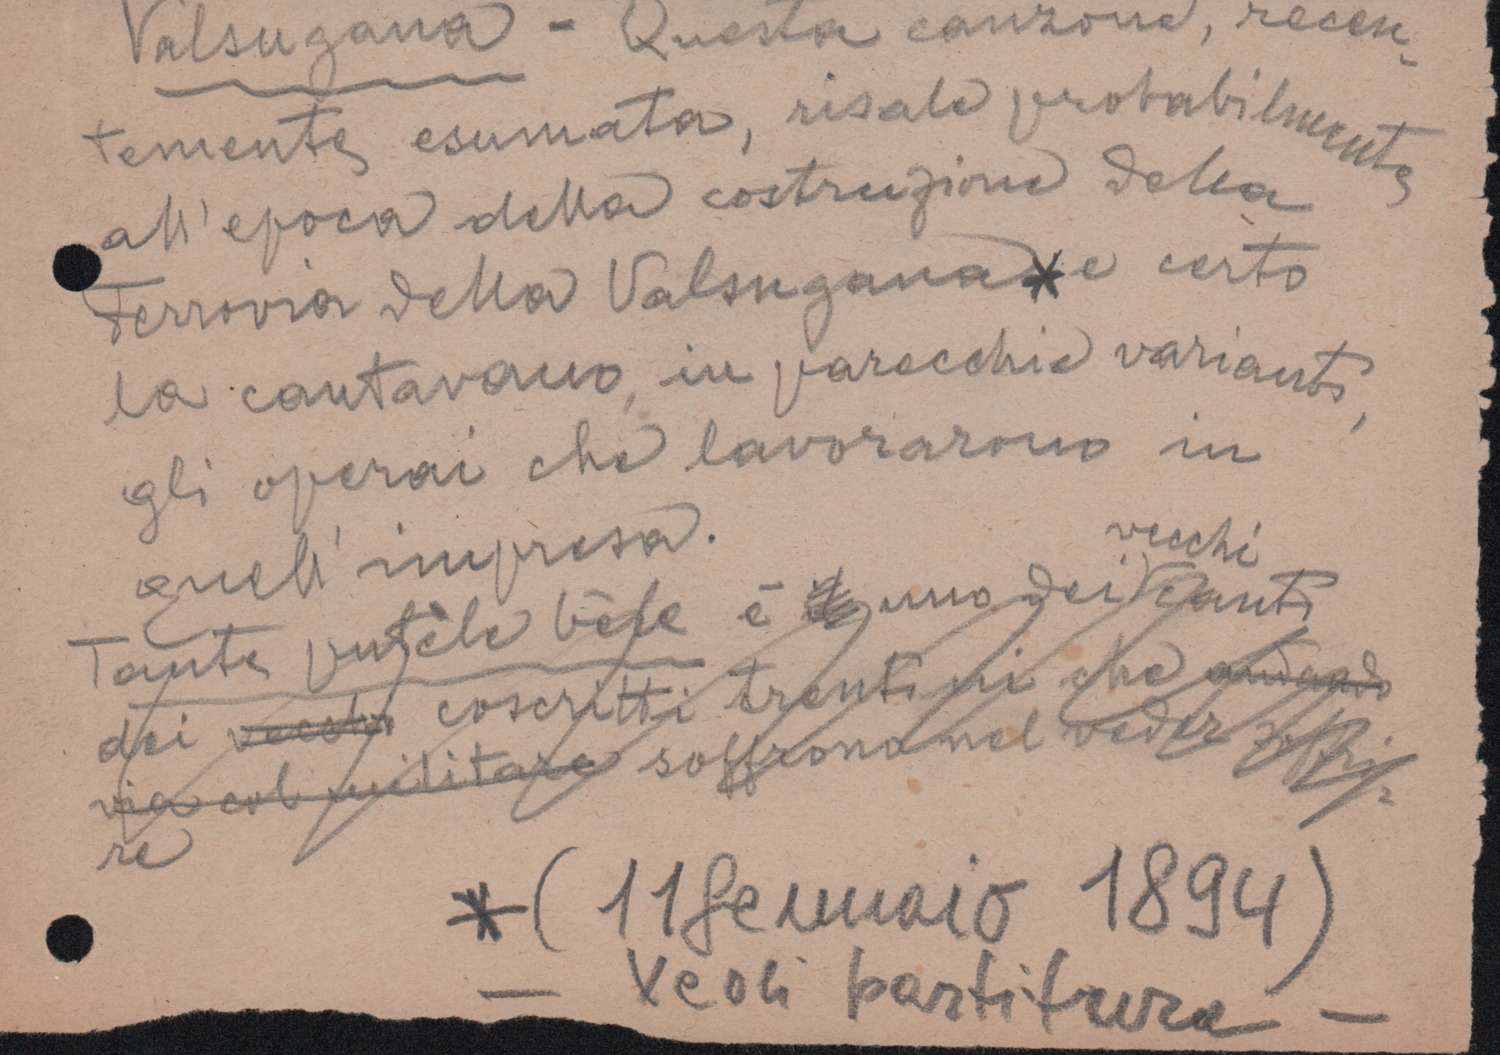 Valsugana - Questa canzone, recen-
temente esumata, risale probabilmente
all'epoca della costruzione della
Ferrovia della Valsugana * e certo
la cantavano, in parecchie varianti,
gli operai che lavorarono in
quell'impresa.
vecchi
Tante putèle bèle è uno dei canti
dei vecchi coscritti trentini che andando
via col militare soffrono nel veder soffri-
re
*(11 Gennaio 1894)
- Vedi partitura -